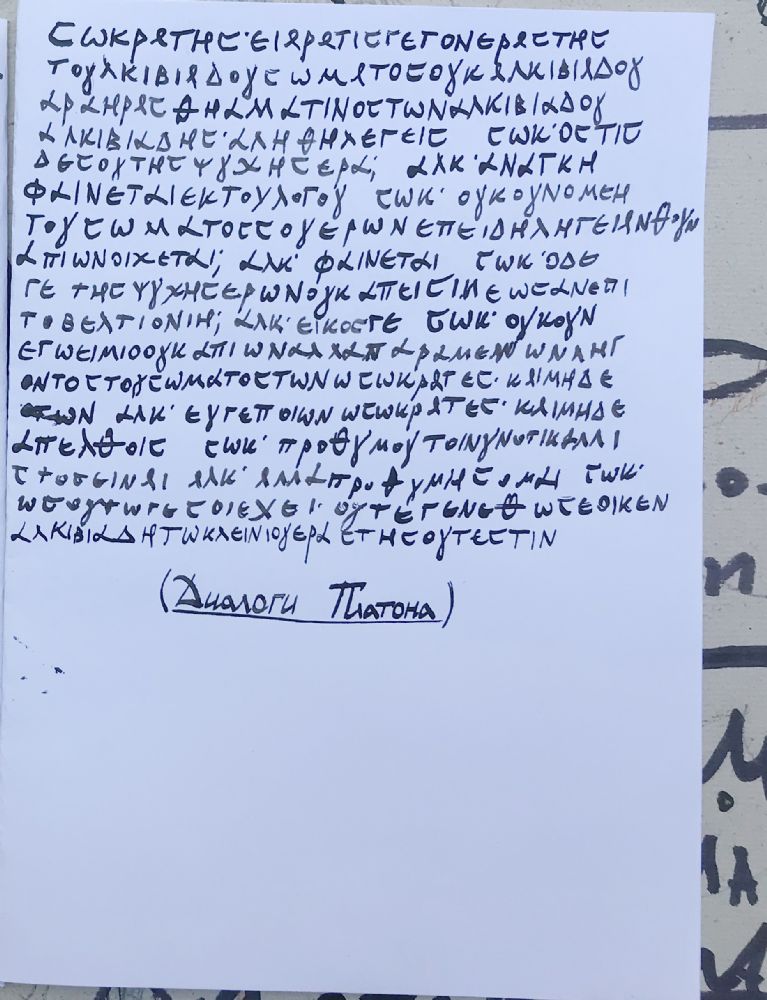 ΣΩΚΡΑΤΗΣ·ΕΙΑΡΑΤΙΣΓΕΓΟΝΕΡΑΣΤΗΣ
ΤΟΥΛΚΙΒΙΑΔΟΥΣΩΜΑΤΟΣΟΥΚΑΛΚΙΒΙΑΔΟΥ
ΑΡΑΗΡΑΣΘΗΑΛΛΑΤΙΝΟΣΤΩΝΑΛΚΙΒΙΑΔΟΥ
ΑΛΚΙΒΙΑΔΗΣ·ΑΛΗΘΗΛΕΓΕΙΣ ΣΩΚ·ΟΣΤΙΣ
ΔΕΣΟΥΤΗΣΨΥΧΗΣΕΡΑ; ΑΛΚ·ΑΝΑΓΚΗ
ΦΑΙΝΕΤΑΙΕΚΤΟΥΛΟΓΟΥ ΣΩΚ· ΟΥΚΟΥΝΟΜΕΝ
ΤΟΥΣΩΜΑΤΟΣΣΟΥΕΡΩΝΕΠΕΙΔΗΛΗΓΕΙΑΝΘΟΥΝ
ΑΠΙΩΝΟΙΧΕΤΑΙ; ΑΛΚ· ΦΑΙΝΕΤΑΙ ΣΩΚ·ΟΔΕ
ΓΕ ΤΗΣΨΥΧΗΣΕΡΩΝΟΥΚΑΠΕΙΣΙΝΕΩΣΑΝΕΠΙ
ΤΟΒΕΛΤΙΟΝΙΗ; ΑΛΚ·ΕΙΚΟΣΓΕ ΣΩΚ·ΟΥΚΟΥΝ
ΕΓΩΕΙΜΙΟΟΥΚΑΠΙΩΝΑΛΛΑΠΑΡΑΜΕΝΩΝΛΗΓ
ΟΝΤΟΣΤΟΥΣΩΜΑΤΟΣΤΩΝΩΣΩΚΡΑΤΕΣ·ΚΑΙΜΗΔΕ
ΑΛΚ·ΕΥΓΕΠΟΙΩΝΩΣΩΚΡΑΤΕΣ·ΚΑΙΜΗΔΕ
ΑΠΕΛΘΟΙΣ ΣΩΚ·ΠΡΟΘΥΜΟΥΤΟΙΝΥΝΟΤΙΚΑΛΛΙ
ΣΤΟΣΕΙΝΑΙ ΑΛΚ·ΑΛΛΑΠΡΟΘΥΜΗΣΟΜΑΙ ΣΩΚ·
ΩΣΟΥΤΩΓΕΣΟΙΕΧΕΙ·ΟΥΤΕΓΕΝΕΘΩΣΕΟΙΚΕΝ
ΑΛΚΙΒΙΑΔΗΤΩΚΛΕΙΝΙΟΥΕΡΑΣΤΗΣΟΥΤΕΣΤΙΝ
(Диалоги Платона)